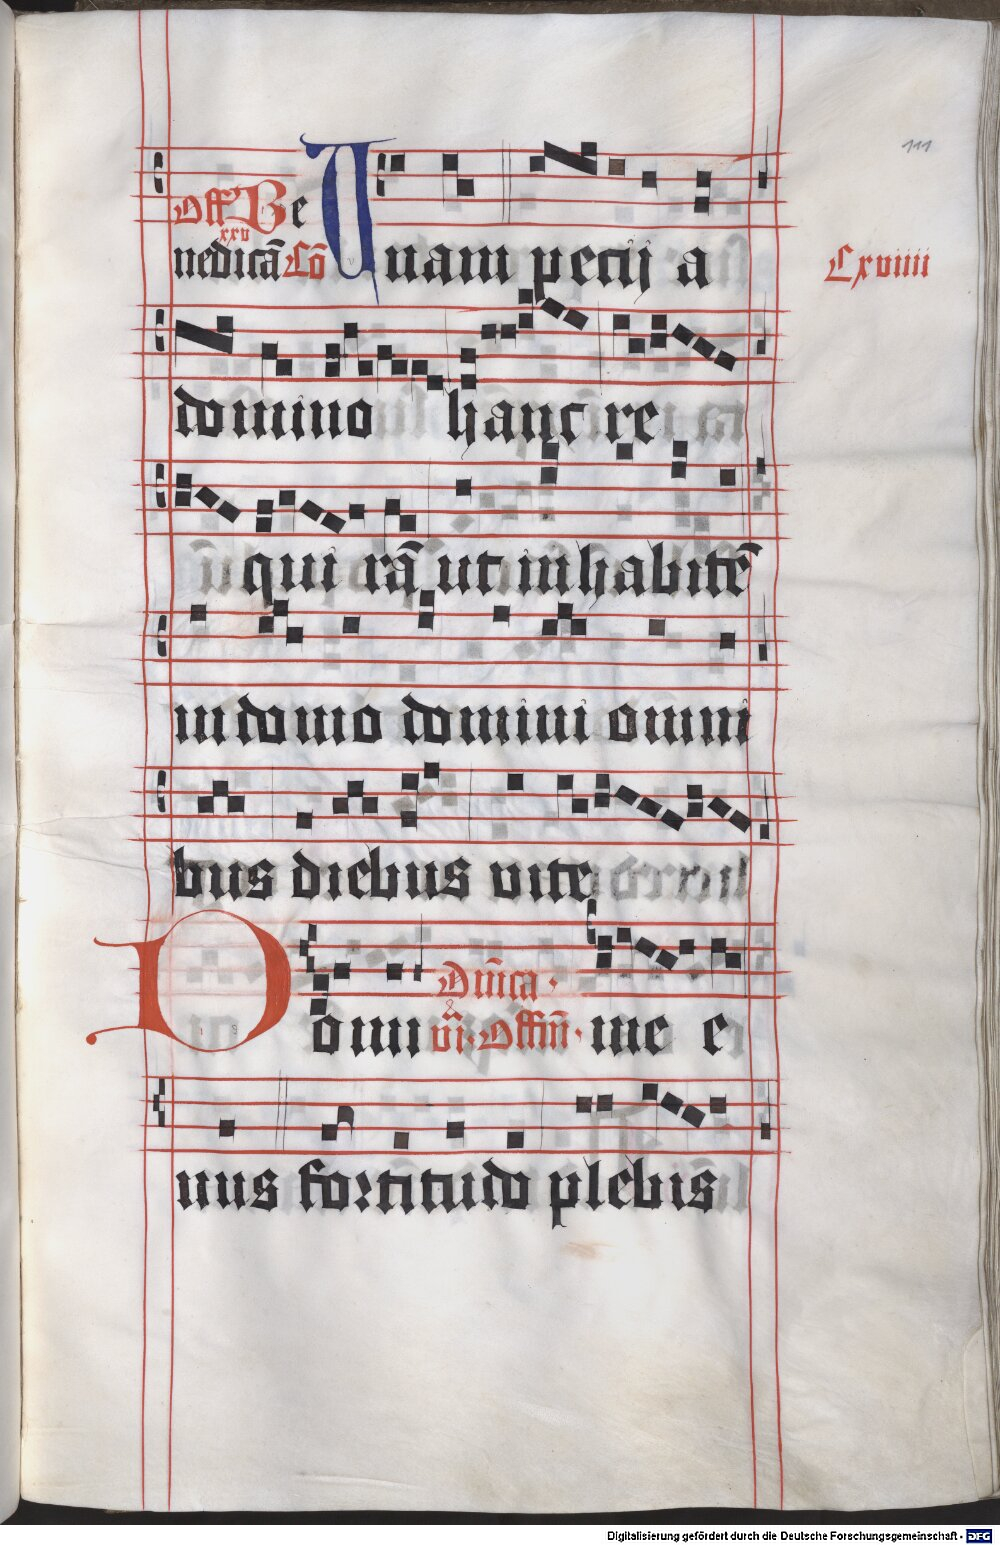 111
Off Be
xxv
nedicā Cō Unam pecij a
Cxviiii
domino hanc re
qui rā ut inhabitē
in domo domini omni
bus diebus vite
Dn̄ica
Domi vi. Offm̄. ne e
nus fortitudo plebis
Digitalisierung gefördert durch die Deutsche Forschungsgemeinschaft - DFG